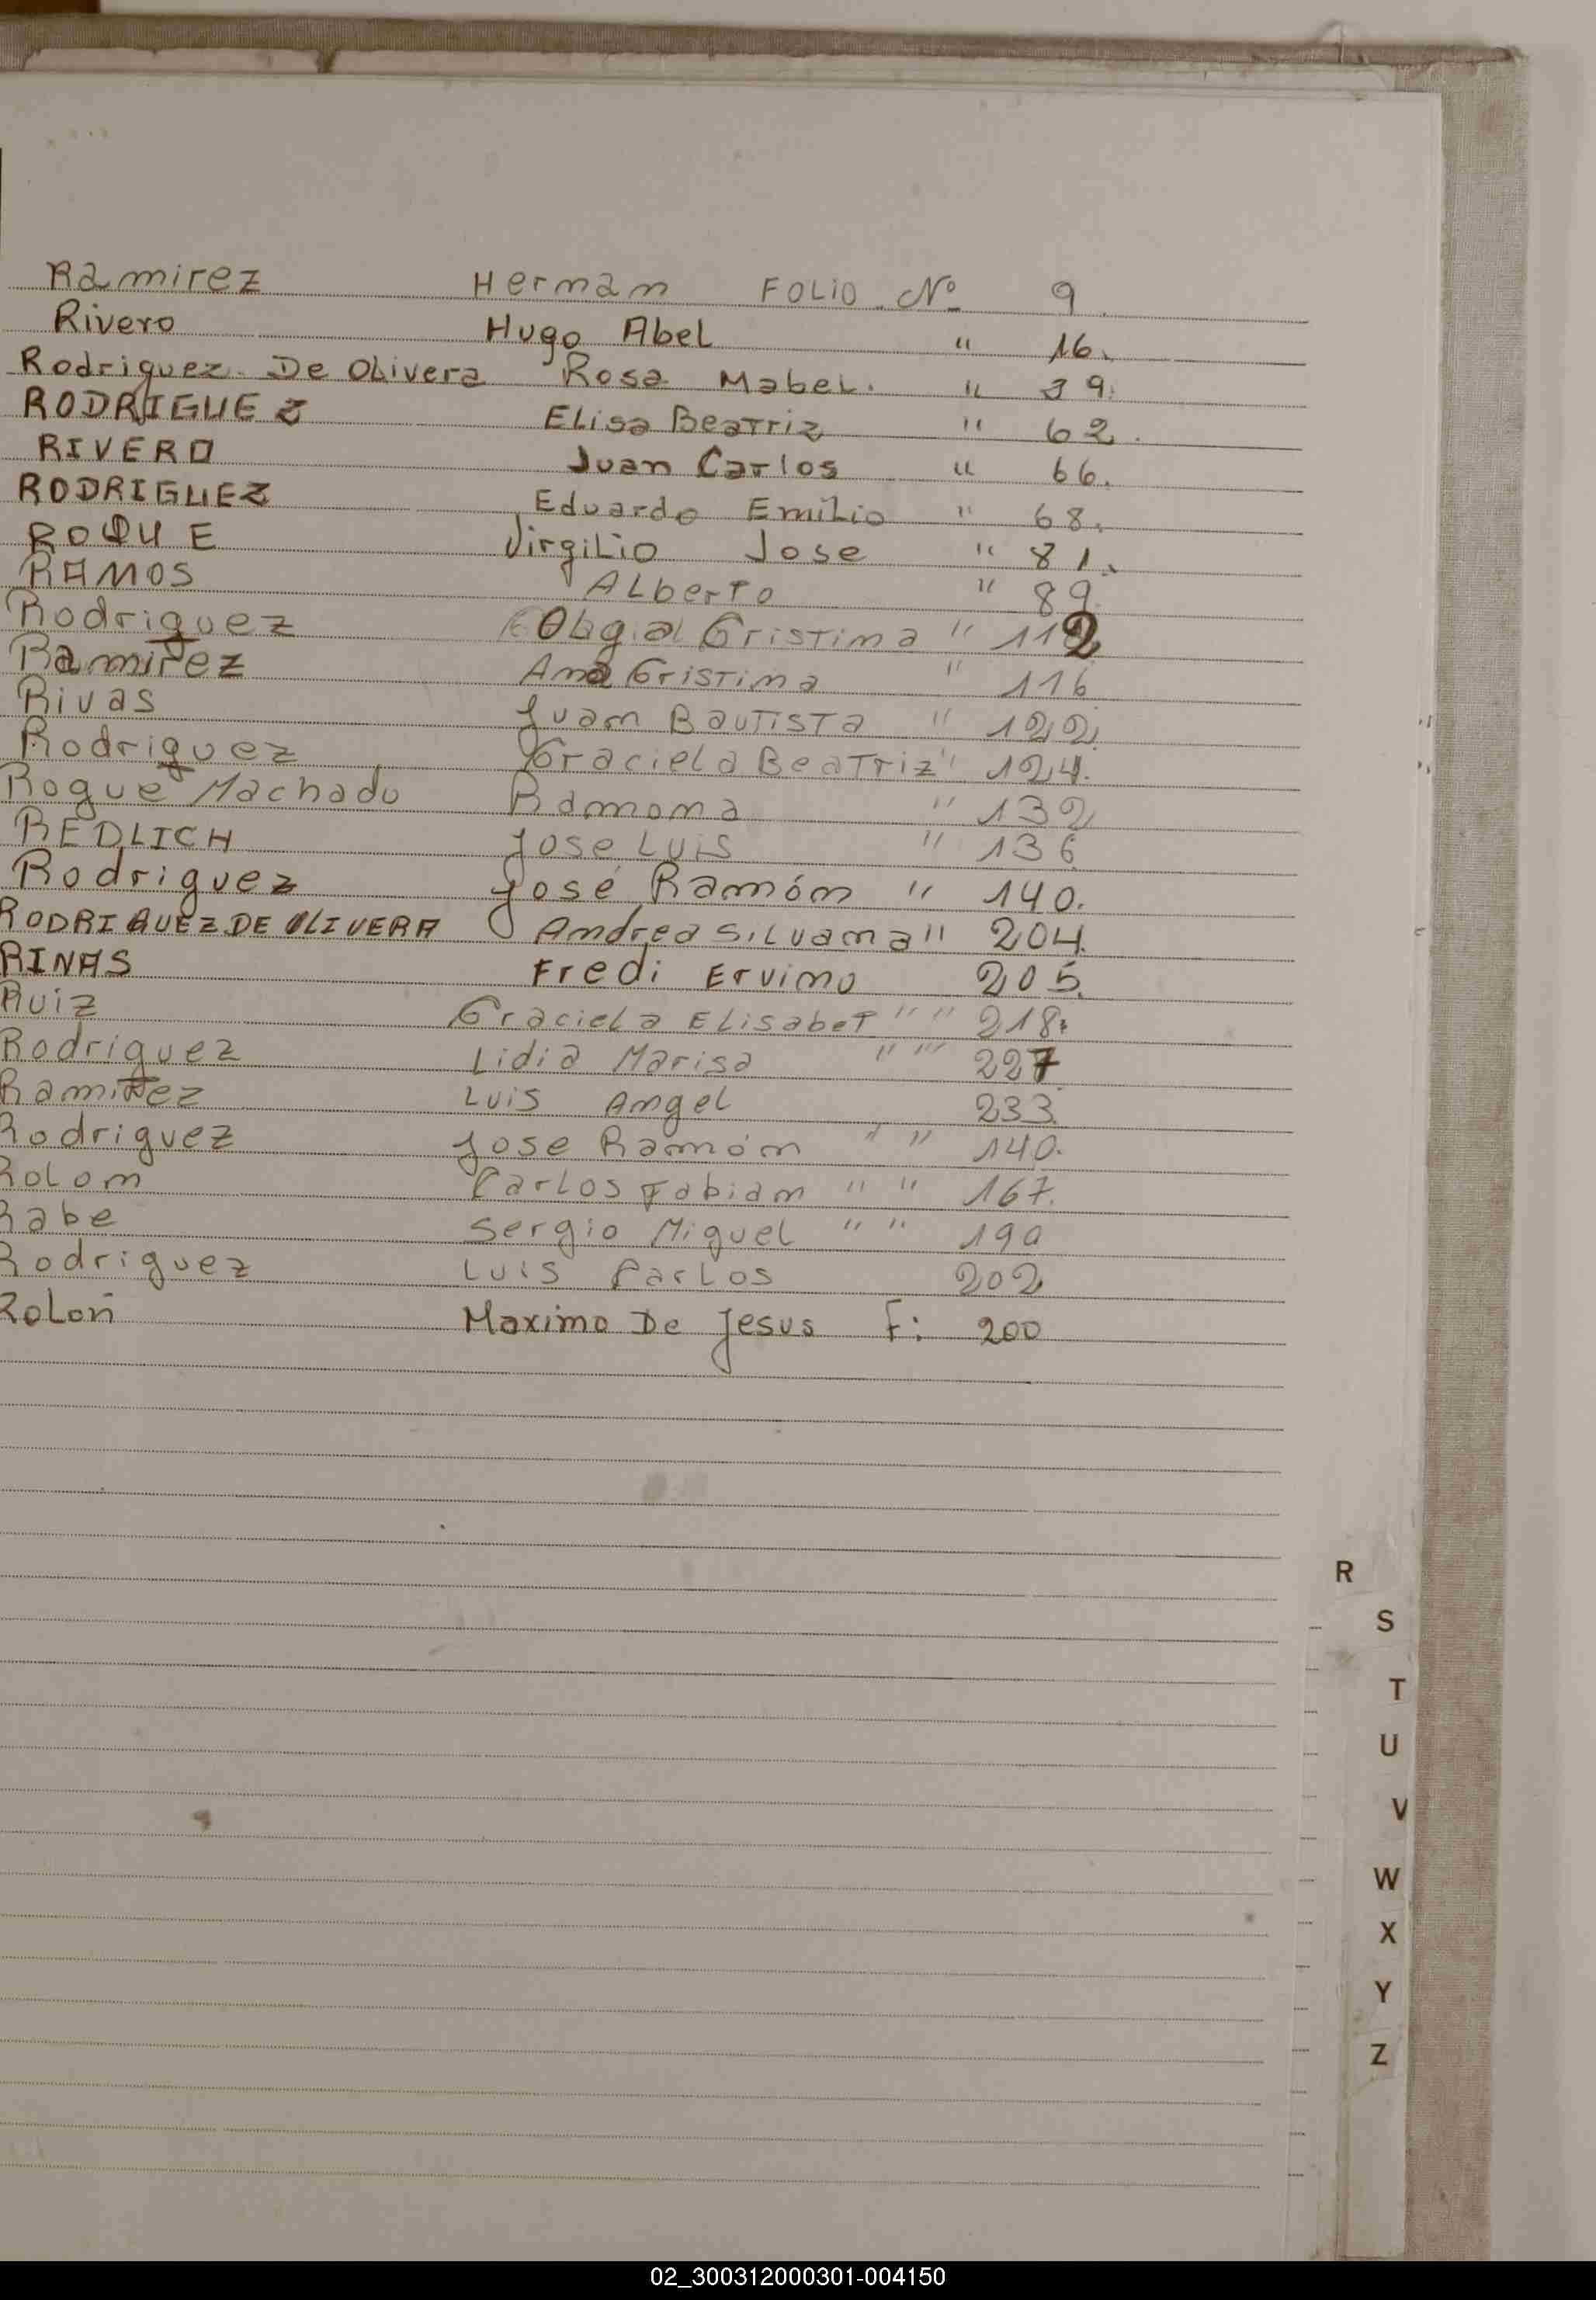 Ramirez Hernan FOLIO Nº 9
Rivero Hugo Abel " 16.
Rodriguez De Olivera Rosa Mabel. " 39.
RODRIGUEZ Elisa Beatriz " 62.
RIVERO Juan Carlos " 66.
RODRIGUEZ Eduardo Emilio " 68.
ROQUE Virgilio Jose " 81.
RAMOS Alberto " 89.
Rodriguez Cristina " 112
Ramirez Ana Cristina " 116
Rivas Juan Bautista " 122.
Rodriguez Graciela Beatriz " 124.
Rogue Machado Ramona " 132
REDLICH Jose Luis " 136
Rodriguez José Ramón " 140.
RODRIGUEZ DE OLIVERA Andrea Silvana " 204.
RINAS Fredi Ervino 205.
Ruiz Graciela Elisabet " " 218.
Rodriguez Lidia Marisa " " 227
Ramirez Luis Angel 233.
Rodriguez Jose Ramón " " 140.
Rolon Carlos Fabian " " 167.
Rabe Sergio Miguel " " 190
Rodriguez Luis Carlos 202
Rolon Maximo De Jesus F: 200
R
S
T
U
V
W
X
Y
Z
02_300312000301-004150